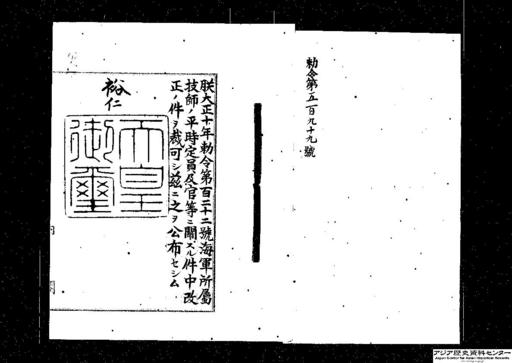 勅令第五百九十九號
朕大正十年勅令第百二十二號海軍所屬
技師ノ平時定員及官等ニ關スル件中改
正ノ件ヲ裁可シ茲ニ之ヲ公布セシム
裕仁
天皇
御璽
内 閣
アジア歴史資料センター
Japan Center for Asian Historical Records